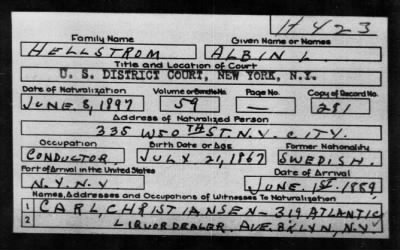 H 423
Family Name Given Name or Names
HELLSTROM ALBIN L.
Title and Location of Court
U. S. DISTRICT COURT, NEW YORK, N.Y.
Date of Naturalization Volume or Bundle No. Page No. Copy of Record No.
JUNE. 8, 1897 59 — 281
Address of Naturalized Person
335 W 50TH ST. N.Y. CITY.
Occupation Birth Date or Age Former Nationality
CONDUCTOR. JULY 21, 1867 SWEDISH.
Port of Arrival in the United States Date of Arrival
N.Y. N.Y JUNE. 1ST. 1889
Names, Addresses and Occupations of Witnesses To Naturalization
1 CARL, CHRISTIANSEN - 319 ATLANTIC
2 LIQUOR DEALER. AVE. BKLYN, N.Y.